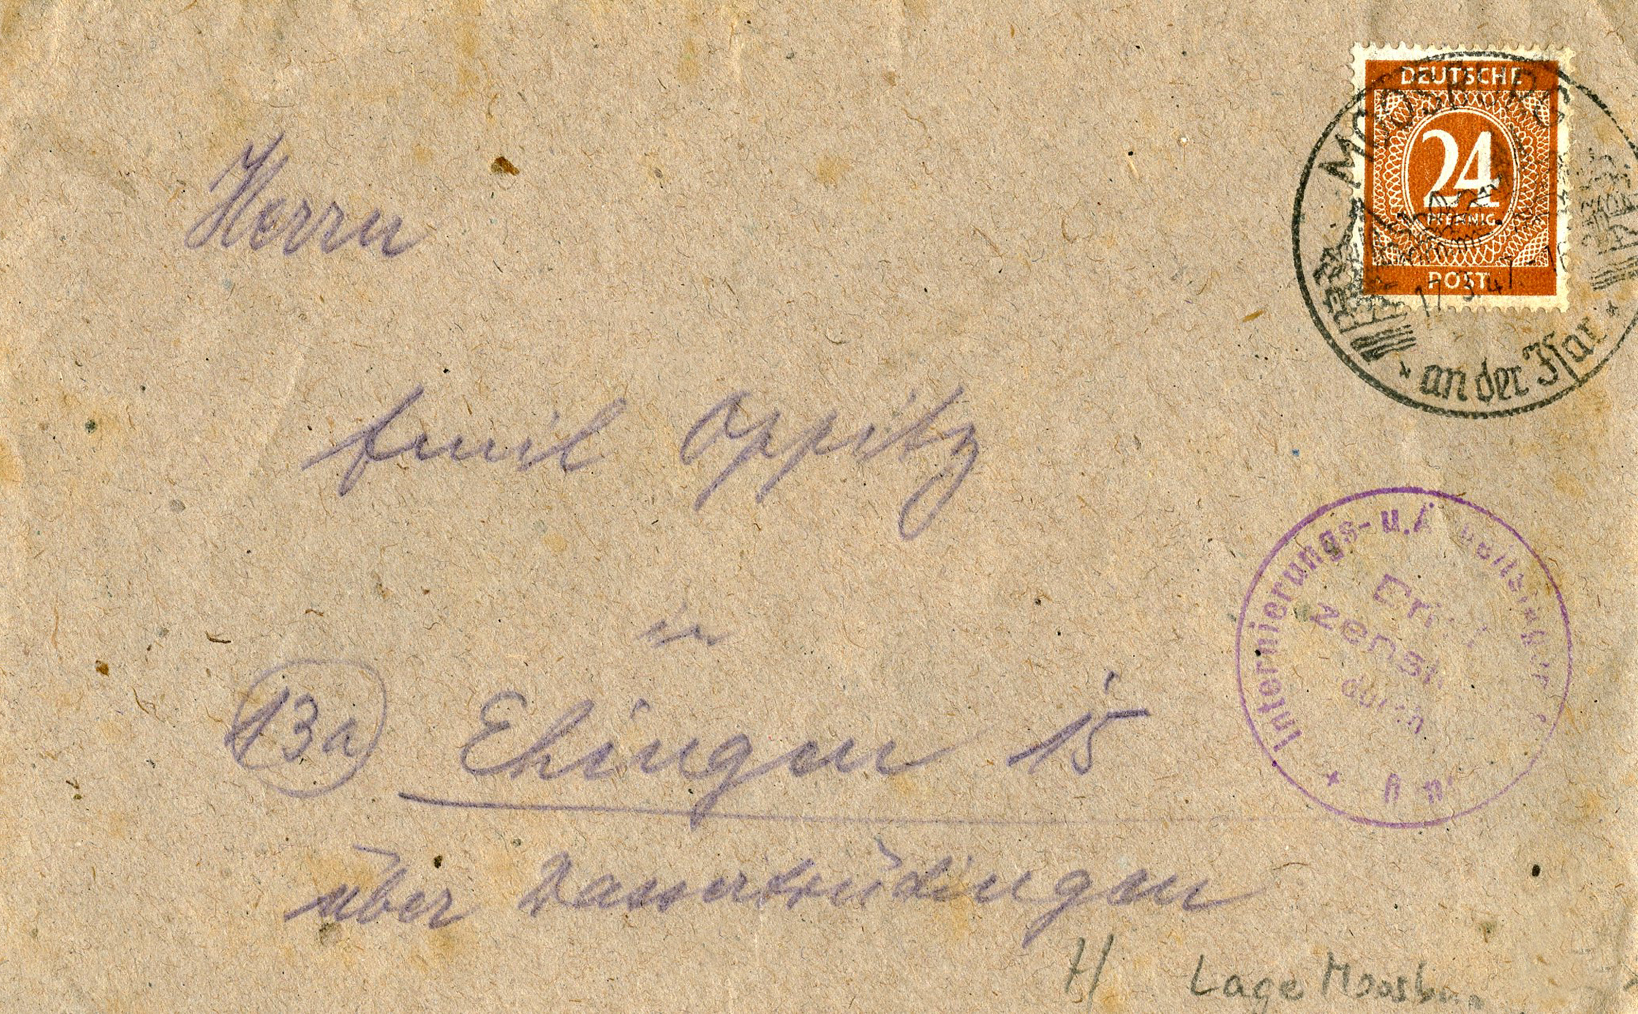 DEUTSCHE
24
PFENNIG
POST
MOOSBURG
17.3.47.-16
an der Isar
Herrn
Emil Oppitz
in
13a Ehingen 15
über Wassertrüdingen
Internierungs- u. Arbeitslager
Brief
zensur
durch
H Lage Moosbu